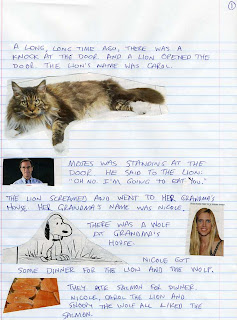 1
A LONG, LONG TIME AGO, THERE WAS A
KNOCK AT THE DOOR AND A LION OPENED THE
DOOR. THE LION'S NAME WAS CAROL.
MOSES WAS STANDING AT THE
DOOR. HE SAID TO THE LION:
"OH NO I'M GOING TO EAT YOU."
THE LION SCREAMED AND WENT TO HER GRANDMA'S
HOUSE. HER GRANDMA'S NAME WAS NICOLE.
THERE WAS A WOLF
AT GRANDMA'S
HOUSE.
NICOLE GOT
SOME DINNER FOR THE LION AND THE WOLF.
THEY ATE SALMON FOR DINNER.
NICOLE, CAROL THE LION AND
SNOOPY THE WOLF ALL LIKED THE
SALMON.